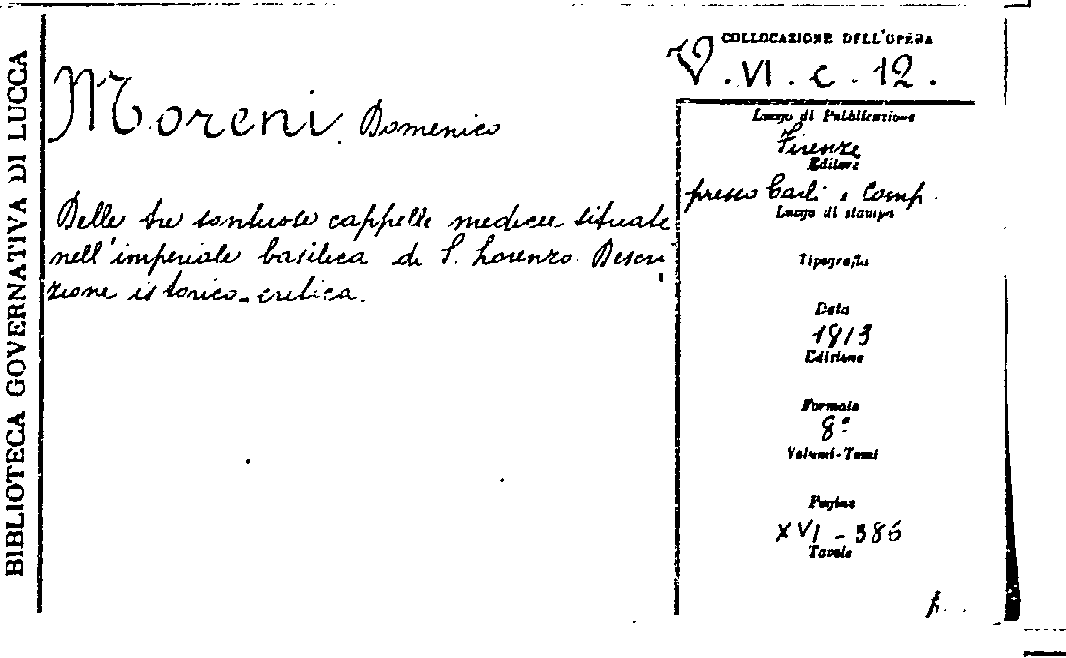 BIBLIOTECA GOVERNATIVA DI LUCCA
Moreni, Domenico
Delle tre sontuose cappelle medicee situate
nell'imperiale basilica di S. Lorenzo. Descri
zione istorico-critica.
COLLOCAZIONE DELL'OPERA
. VI . c . 12 .
Luogo di Pubblicazione
Firenze
Editore
presso Carli e Comp.
Luogo di stampa
Tipografia
Data
1813
Edizione
Formato
8°
Volumi-Tomi
Pagine
XVI - 386
Tavole